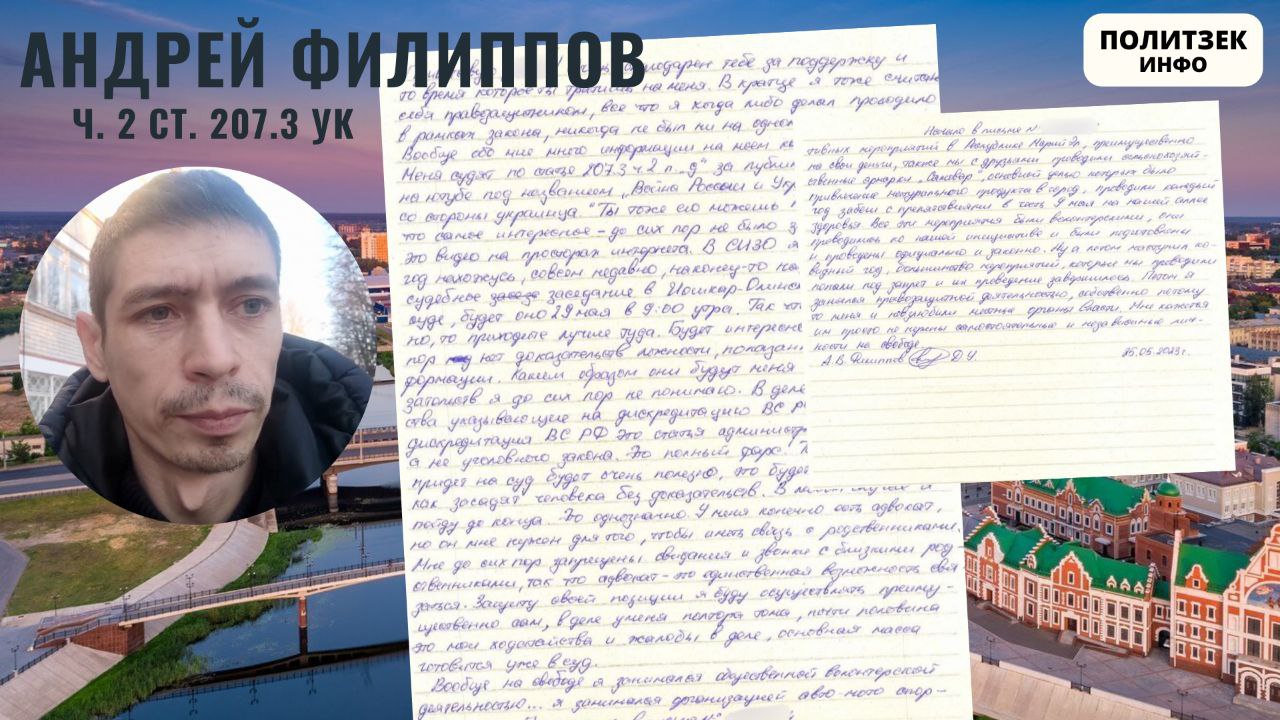 АНДРЕЙ ФИЛИППОВ
Ч. 2 СТ. 207.3 УК
ПОЛИТЗЕК
ИНФО
благодарен тебе за поддержку и
то время которое ты тратишь на меня. В кратце я тоже считаю
себя правозащитником, все что я когда либо делал проходило
в рамках закона, никогда не был ни на одном
Вообще обо мне много информации на моем ка
Меня судят по статье 207.3 ч 2 п. „д" за публи
на ютубе под названием „Война России и Укр
со стороны украинца." Ты тоже его можешь
что самое интересное - до сих пор не было з
это видео на просторах интернета. В СИЗО я
год нахожусь, совсем недавно, наконец-то на
судебное заседание в Йошкар-Олинск
суде, будет оно 29 мая в 9:00 утра. Так что
но, то приходите лучше туда. Будет интересн
пор нет доказательств ложности, показан
формации. Каким образом они будут меня
затолкств я до сих пор не понимаю. В деле
ства указывающие на дискредитацию ВС Р
дискредитация ВС РФ это статья администр
а не уголовного закона. Это полный фарс.
придет на суд будет очень полезно, это будет
как засадят человека без доказательств. В
пойду до конца. Это однозначно. У меня конечно есть адвокат,
но он мне нужен для того, чтобы иметь связь с родственниками.
Мне до сих пор запрещены свидания и звонки с близкими род
ственниками, так что адвокат - это единственная возможность свя
заться. Защиту своей позиции я буду осуществлять преиму-
щественно сам, в деле у меня полтора тома, почти половина
это мои ходатайства и жалобы в деле, основная масса
готовится уже в суд.
Вообще на свободе я занимался общественной волонтерской
деятельностью... я занимался организацией авто-мото спор-
Начало в письме №
тивных мероприятий в Республике Марий Эл, преимущественно
на свои деньги, также мы с друзьями проводили сельскохозяй-
ственные ярмарки „Сеновар", основной целью которых было
привлечение натурального продукта в город, проводили каждый
год забеги с препятствиями в честь 9 мая на нашей аллее
Здоровья. Все эти мероприятия были волонтерскими, они
проводились по нашей инициативе и были подготовлены
и проведены официально и законно. Ну а потом наступил ко-
видный год, большинство мероприятий, которые мы проводили
попали под запрет и их проведение завершилось. Потом я
занялся правозащитной деятельностью, собственно потому
то меня и невзлюбили местные органы власти. Мне кажется
им просто не нужны самостоятельные и независимые лич-
ности на свободе.
А.В. Филиппов
25.05.2023г.